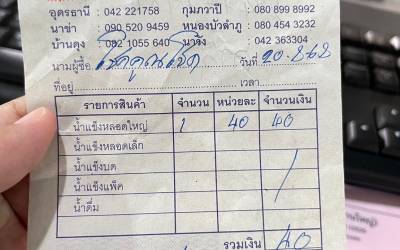 อุดรธานี : 042 221758 กุมภวาปี : 080 899 8992
นาข่า : 090 520 9459 หนองบัวลำภู : 080 454 3232
บ้านดุง : 082 1055 640 นาวัง : 042 363304
นามผู้ซื้อ โชคคูณโชค วันที่
ที่อยู่ เวลา
รายการสินค้า จำนวน หน่วยละ จำนวนเงิน
น้ำแข็งหลอดใหญ่ 1 40 40
น้ำแข็งหลอดเล็ก
น้ำแข็งบด
น้ำแข็งแพ็ค
น้ำดื่ม
รวมเงิน 40